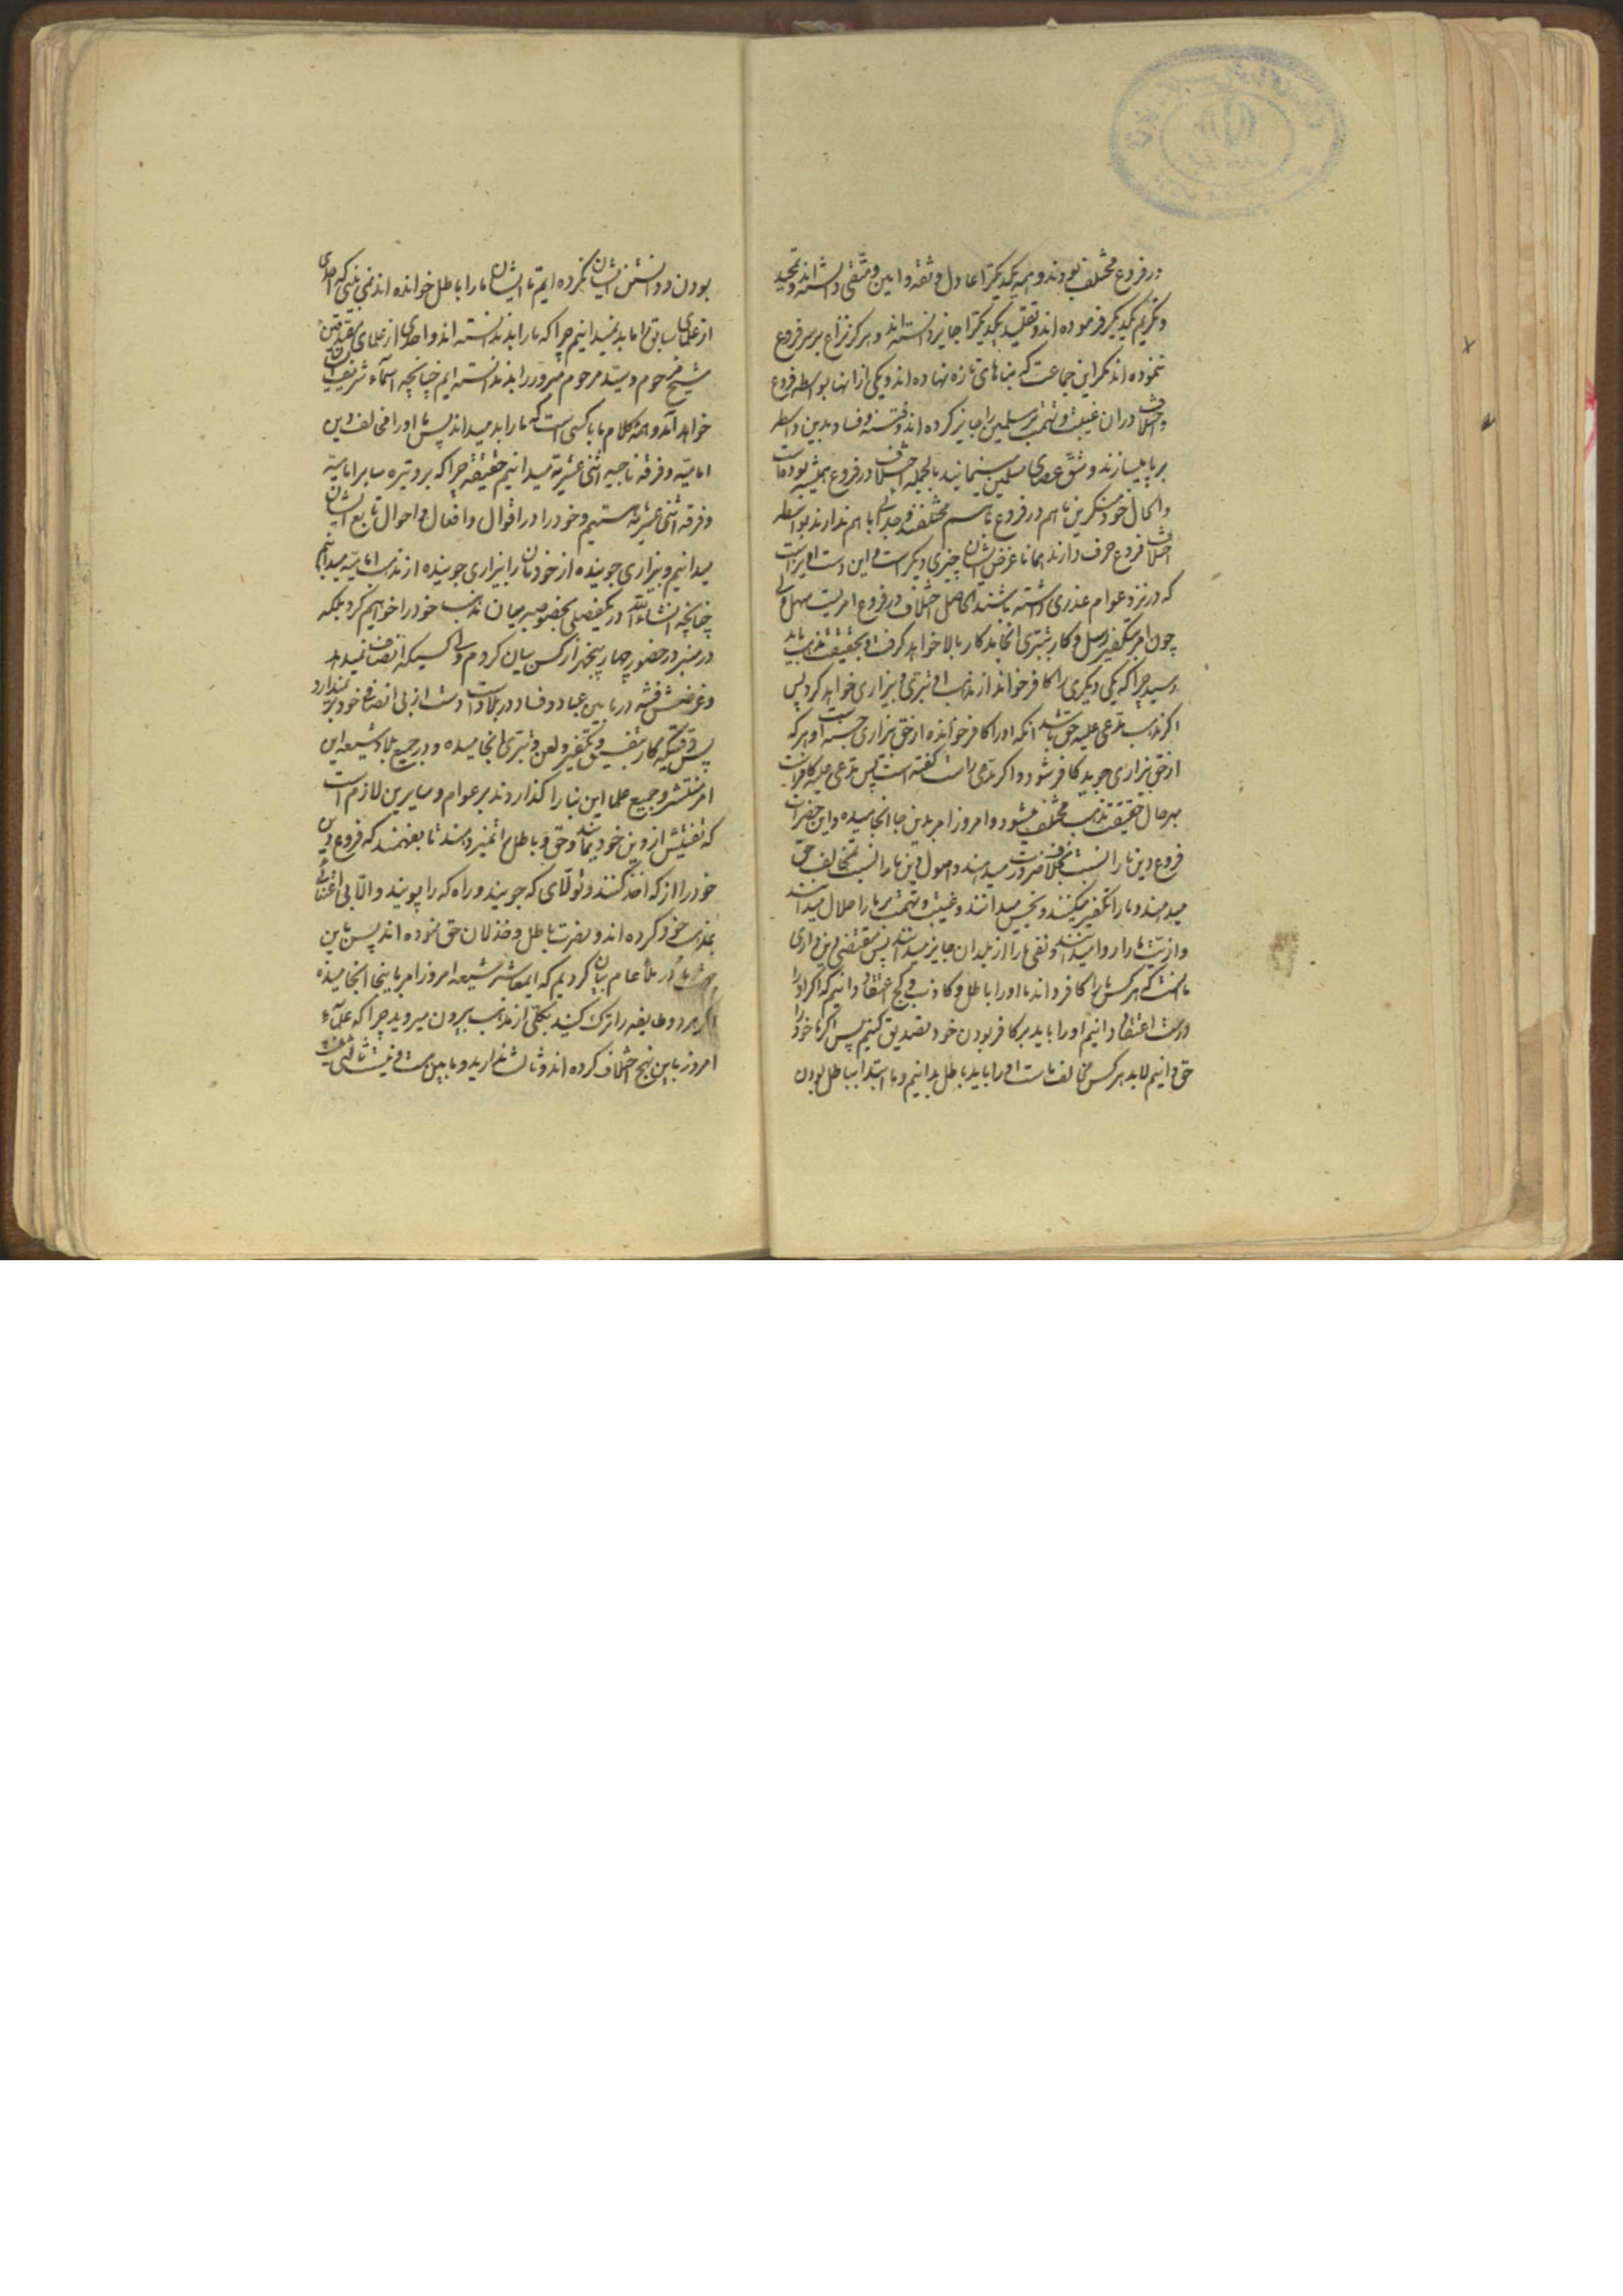 در فروع مختلف بودند و همه یکدیگر را عادل و ثقه و امین و متقی دانسته‌اند و تمجید
و تکریم یکدیگر فرموده‌اند و تقلید یکدیگر را جایز دانسته‌اند و هرگز نزاع بر سر فروع
ننموده‌اند مگر این جماعت که بناهای تازه نهاده‌اند و یکی از انها بواسطه فروع
و اختلاف در ان غیبت و تهمت بر مسلمین را جایز کرده‌اند و فتنه و فساد بدین واسطه
بر پا میسازند و شق عصای مسلمین مینمایند بالجمله اختلاف در فروع همیشه بوده است
و الحال خود منکرین ما هم در فروع با هم مختلفند و جدالی با هم ندارند بواسطه
اختلاف فروع حرف دارند همانا غرض ایشان چیزی دیگر است و این دست اویز است
که در نزد عوام عذری داشته باشند الحاصل اختلاف در فروع امریست سهل ولی
چون امر بتکفیر رسد و کار بتبری انجامد کار بالا خواهد گرفت و بحقیقت مذهب باید
رسید چرا که یکی دیگری را کافر خواند از مذهب او تبری و بیزاری خواهد کرد پس
اگر مذهب مدعی علیه حق باشد انکه او را کافر خوانده از حق بیزاری جسته است و هر که
از حق بیزاری جوید کافر شود و اگر مدعی راست گفته است پس مدعی علیه کافر است
بهر حال حقیقت مذهب مختلف میشود و امروز امر بدین جا انجامیده و این حضرات
فروع دین ما را نسبت بخلاف ضرورت میدهند و اصول دین ما را نسبت بمخالف حق
میدهند و ما را تکفیر میکنند و نجس میدانند و غیبت و تهمت بر ما را حلال میدانند
و اذیت ما را روا میدانند و نفی ما را از بلدان جایز میدانند پس مقتضی دین داری
ما انست که هر کس ما را کافر داند ما او را باطل و کاذب و کج اعتقاد دانیم که اگر او را
درست اعتقاد دانیم او را باید بر کافر بودن خود تصدیق کنیم پس اگر ما خود را
حق دانیم لابد هر کس مخالف ماست او را باید باطل بدانیم و ما ابتدا بباطل بودن
بودن و دانستن ایشان نکرده‌ایم تا ایشان ما را باطل خوانده‌اند نمی بینی که احدی
از علمای سابق را ما بد نمیدانیم چرا که ما را بد ندانسته‌اند و احدی از علمای متقدمین
شیخ مرحوم و سید مرحوم مبرور را بد ندانسته‌ایم چنانچه اسماء شریفشان
خواهد آمد و همه کلام ما با کسی است که ما را بد میداند پس ما او را مخالف دین
امامیه و فرقه ناجیه اثنی عشریه میدانیم حقیقة چرا که بر وتیره سایر امامیه
و فرقه اثنی عشریه هستیم و خود را در اقوال و افعال و احوال تابع ایشان
میدانیم و بیزاری جوینده از خودمان را بیزاری جوینده از مذهب امامیه میدانیم
چنانچه انشاء الله در یکفصلی بخصوصه بیان مذهب خود را خواهیم کرد بلکه
در منبر در حضور چهار پنجهزار کس بیان کردم ولی کسیکه انصاف نمیدهد
و غرضش فتنه در ما بین عباد و فساد در بلاد است دست از بی انصافی خود بر نمیدارد
پس وقتیکه کار بتفسیق و تکفیر و لعن و تبری انجامیده و در جمیع بلاد شیعه این
امر منتشر و جمیع علما این بنا را گذاردند بر عوام و سایرین لازم است
که تفتیش از دین خود بنمایند و حق و باطل را تمیز دهند تا بفهمند که فروع دین
خود را از که اخذ کنند و تولای که جویند و راه که را پویند و الا بی اعتنائی
بمذهب خود کرده‌اند و نصرت باطل و خذلان حق نموده‌اند پس باین
جهت ما در ملأ عام بیان کردیم که ایمعاشر شیعه امروز امر باینجا انجامیده
اگر هر دو طایفه را ترک کنید بکلی از مذهب بیرون میروید چرا که علماء
امروز باین نهج اختلاف کرده‌اند و ثالث ندارید و ما بین حق و نیست ثالثی